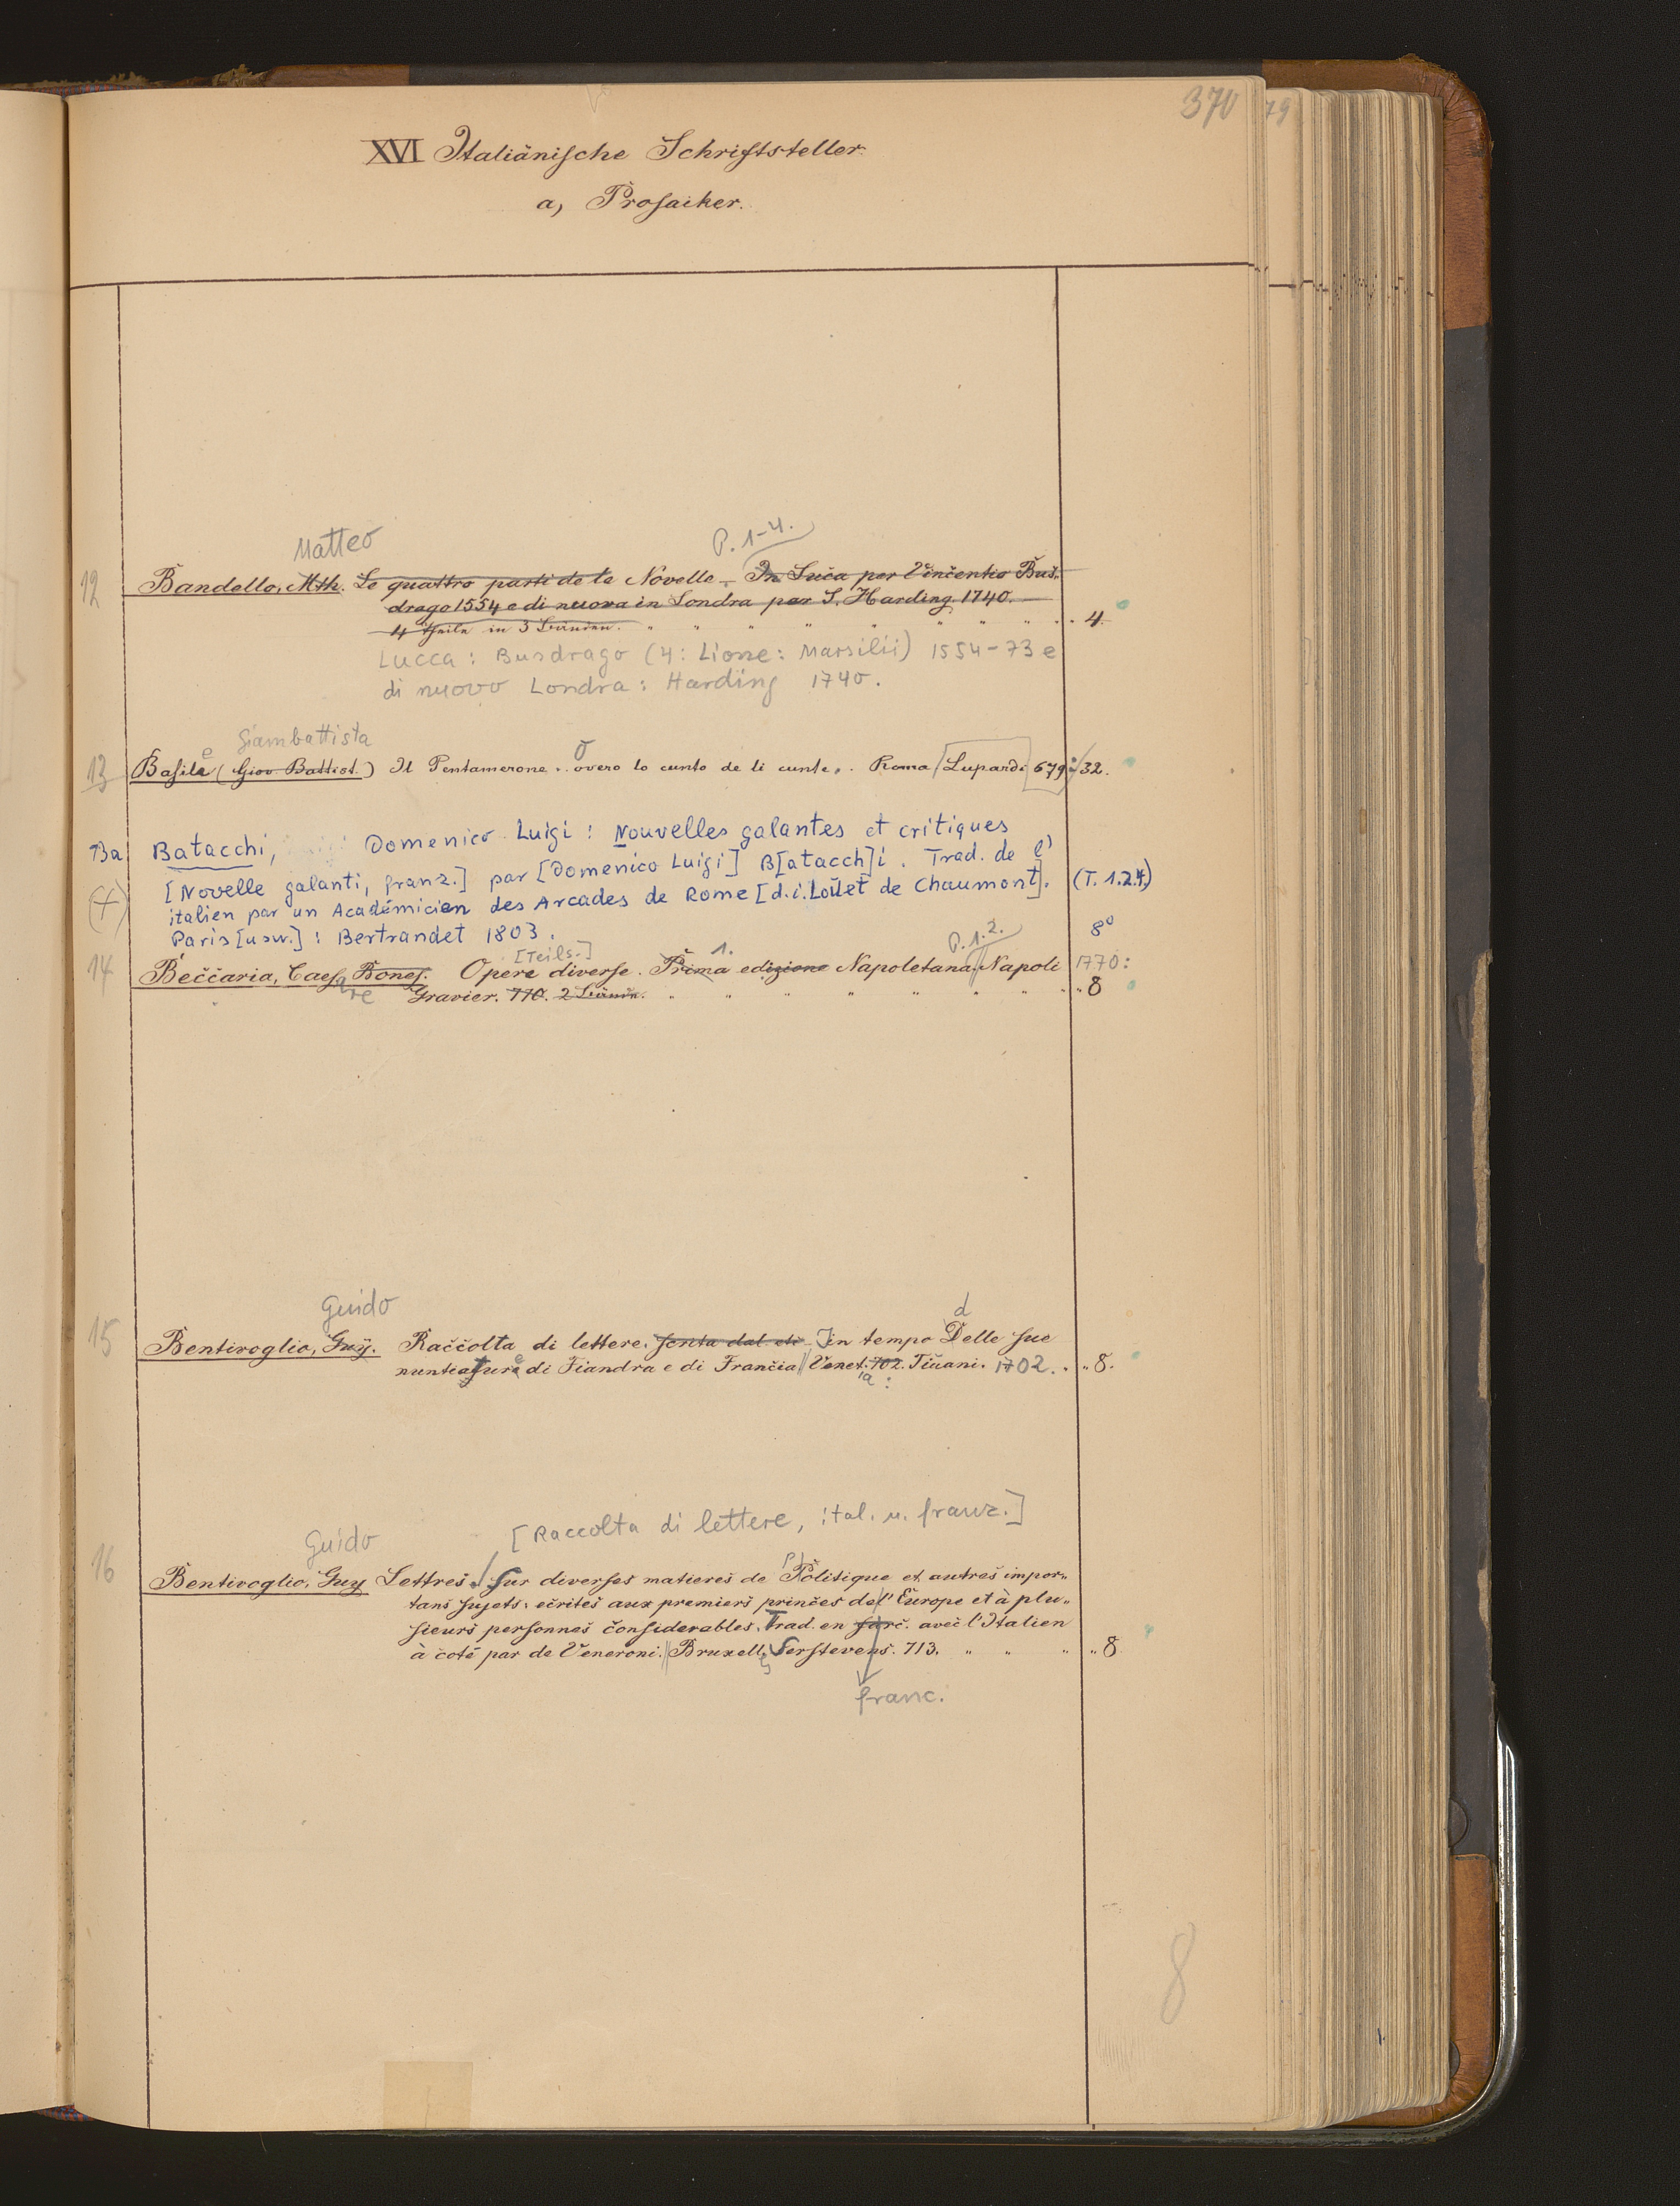 370
79
XVI Italiänische Schriftsteller.
a, Prosaiker.
Matteo
P. 1-4.
12 Bandello, Mth. Le quattro parti de le Novelle. In Luca per Vincentio Bus-
drago 1554 e di nuova in Londra per S. Harding. 1740.
4 Theile in 3 Bänden. " " " " " " " " 4.
Lucca: Busdrago (4: Lione: Marsilii) 1554-73 e
di nuovo Londra: Harding 1740.
Giambattista
13 Basile (Giov. Battist.) Il Pentamerone. overo lo cunto de li cunte. Roma Lupardi 679. 32.
Ba Batacchi, Domenico Luigi: Nouvelles galantes et critiques
[Novelle galanti, franz.] par [Domenico Luigi] B[atacch]i. Trad. de l'
(+) italien par un Académicien des Arcades de Rome [d.i. Louet de Chaumont]. (T. 1.2.4.)
Paris [usw.]: Bertrandet 1803. 8°
[Teils.] 1. P. 1.2.
14 Beccaria, Caes. Bones. Opere diverse. Prima edizione Napoletana. Napoli 1770:
are Gravier. 770. 2 Bände. " " " " " " " " 8
Guido
d
15 Bentivoglio, Guy. Raccolta di lettere. scritta dal eti In tempo Delle sue
nuntiature di Fiandra e di Francia Venet. 702. Tiuani. 1702. " 8.
ia :
[Raccolta di lettere, ital. u. franz.]
Guido
16 Bentivoglio, Guy Lettres. Sur diverses matieres de Politique et autres impor-
tans sujets: ecrites aux premiers princes de l'Europe et à plu-
sieurs personnes considerables. Trad. en avec l'Italien
à coté par de Veneroni. Bruxell. Serstevens. 713. " " " " 8
franc.
8